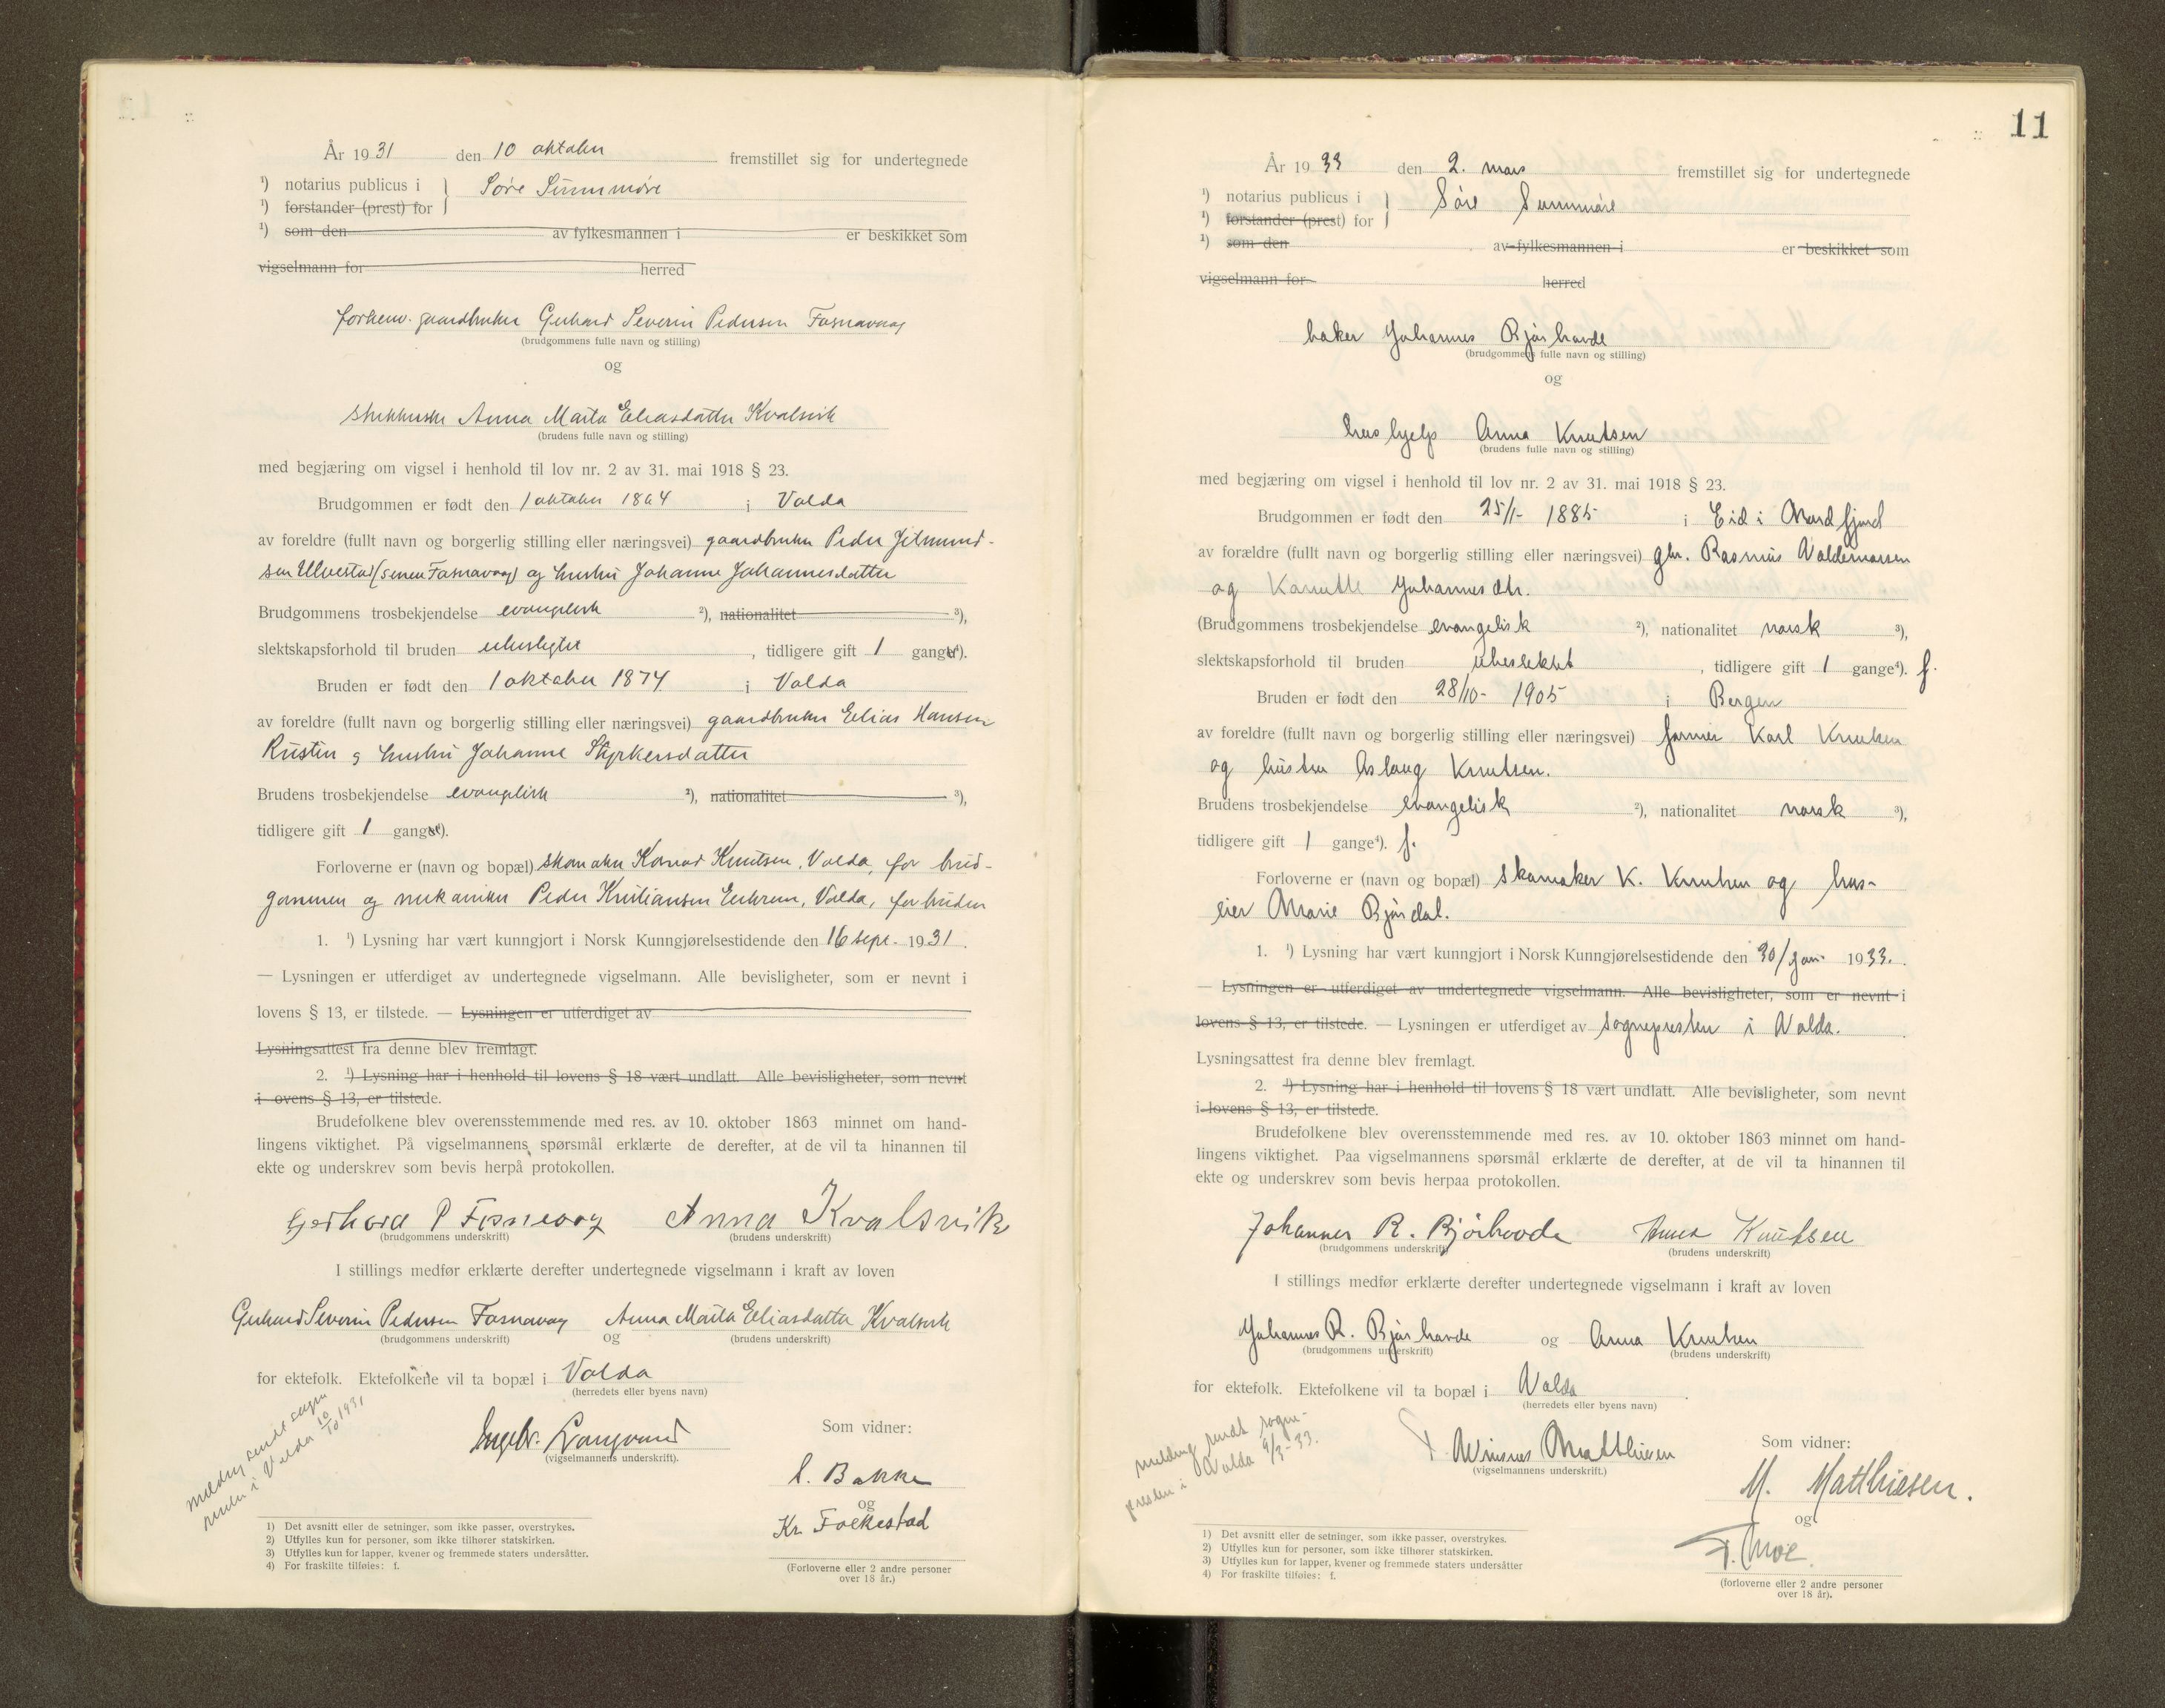 År 1931 den 10 oktober fremstillet sig for undertegnede
¹) notarius publicus i } Søre Sunnmøre
¹) forstander (prest) for
¹) som den av fylkesmannen i er beskikket som
vigselmann for herred
forhenv. gaardbruker Gerhard Severin Pedersen Fosnavaag
(brudgommens fulle navn og stilling)
og
Anna Marta Eliasdatter Kvalsvik
(brudens fulle navn og stilling)
med begjæring om vigsel i henhold til lov nr. 2 av 31. mai 1918 § 23.
Brudgommen er født den 1 oktober 1864 i Volda
av foreldre (fullt navn og borgerlig stilling eller næringsvei) gaardbruker Peder Jetmund-
sen Ulvestad (senere Fosnavaag) og hustru Johanne Johannesdatter
Brudgommens trosbekjendelse evangelisk ²), nationalitet ³),
slektskapsforhold til bruden ubeslegtet, tidligere gift 1 gange⁴).
Bruden er født den 1 oktober 1874 i Volda
av foreldre (fullt navn og borgerlig stilling eller næringsvei) gaardbruker Elias Hansen
Rusten og hustru Johanne Styrkersdatter
Brudens trosbekjendelse evangelisk ²), nationalitet ³),
tidligere gift 1 gange⁴).
Forloverne er (navn og bopæl) skomaker Konrad Knutsen, Volda, for brud-
gommen og mekaniker Peder Kristiansen Eikrem, Volda, for bruden
1. ¹) Lysning har vært kunngjort i Norsk Kunngjørelsestidende den 16 sept. 1931.
— Lysningen er utferdiget av undertegnede vigselmann. Alle bevisligheter, som er nevnt i
lovens § 13, er tilstede. — Lysningen er utferdiget av
Lysningsattest fra denne blev fremlagt.
2. ¹) Lysning har i henhold til lovens § 18 vært undlatt. Alle bevisligheter, som nevnt
i ovens § 13, er tilstede.
Brudefolkene blev overensstemmende med res. av 10. oktober 1863 minnet om hand-
lingens viktighet. På vigselmannens spørsmål erklærte de derefter, at de vil ta hinannen til
ekte og underskrev som bevis herpå protokollen.
Gerhard P Fosnavog Anna Kvalsvik
(brudgommens underskrift) (brudens underskrift)
I stillings medfør erklærte derefter undertegnede vigselmann i kraft av loven
Gerhard Severin Pedersen Fosnavaag Anna Marta Eliasdatter Kvalsvik
(brudgommens underskrift) og (brudens underskrift)
for ektefolk. Ektefolkene vil ta bopæl i Volda
(herredets eller byens navn)
melding sendt sogne
presten i Volda 10/10 1931
Som vidner:
Ingebr. Langvand
(vigselmannens underskrift).
Bakke
og
Kr. Folkestad
(Forloverne eller 2 andre personer
over 18 år.)
1) Det avsnitt eller de setninger, som ikke passer, overstrykes.
2) Utfylles kun for personer, som ikke tilhører statskirken.
3) Utfylles kun for lapper, kvener og fremmede staters undersåtter.
4) For fraskilte tilføies: f.
11
År 1933 den 2. mars fremstillet sig for undertegnede
¹) notarius publicus i } Søre Sunnmøre
¹) forstander (prest) for
¹) som den av fylkesmannen i er beskikket som
vigselmann for herred
baker Johannes Bjørhovde
(brudgommens fulle navn og stilling)
og
hushjelp Anna Knutsen
(brudens fulle navn og stilling)
med begjæring om vigsel i henhold til lov nr. 2 av 31. mai 1918 § 23.
Brudgommen er født den 25/1- 1885 i Eid i Nordfjord
av forældre (fullt navn og borgerlig stilling eller næringsvei) gbr. Rasmus Valdemarsen
og Johannesdtr.
(Brudgommens trosbekjendelse evangelisk ²), nationalitet norsk ³),
slektskapsforhold til bruden ubeslektet, tidligere gift 1 gange⁴). f.
Bruden er født den 28/10- 1905 i Bergen
av foreldre (fullt navn og borgerlig stilling eller næringsvei) farmer Karl Knutsen
og hustru Aslaug Knutsen.
Brudens trosbekjendelse evangelisk ²), nationalitet norsk ³),
tidligere gift 1 gange⁴). f.
Forloverne er (navn og bopæl) skomaker K. Knutsen og hus-
eier Marie Bjørdal.
1. ¹) Lysning har vært kunngjort i Norsk Kunngjørelsestidende den 30/jan. 1933.
— Lysningen er utferdiget av undertegnede vigselmann. Alle bevisligheter, som er nevnt i
lovens § 13, er tilstede. — Lysningen er utferdiget av sognepresten i Volda.
Lysningsattest fra denne blev fremlagt.
2. ¹) Lysning har i henhold til lovens § 18 vært undlatt. Alle bevisligheter, som nevnt
i lovens § 13, er tilstede.
Brudefolkene blev overensstemmende med res. av 10. oktober 1863 minnet om hand-
lingens viktighet. Paa vigselmannens spørsmål erklærte de derefter, at de vil ta hinannen til
ekte og underskrev som bevis herpaa protokollen.
Johannes R. Bjørhovde Anna Knutsen
(brudgommens underskrift) (brudens underskrift)
I stillings medfør erklærte derefter undertegnede vigselmann i kraft av loven
Johannes R. Bjørhovde og Anna Knutsen
(brudgommens underskrift) (brudens underskrift)
for ektefolk. Ektefolkene vil ta bopæl i Volda.
(herredets eller byens navn)
melding sendt sogne-
presten i Volda 9/3-33.
Som vidner:
Winsnes Matthiesen
(vigselmannens underskrift.)
M. Matthiesen.
og
T. Moe.
(forloverne eller 2 andre personer
over 18 år).
1) Det avsnitt eller de setninger, som ikke passer, overstrykes.
2) Utfylles kun for personer, som ikke tilhører statskirken.
3) Utfylles kun for lapper, kvener og fremmede staters undersåtter
4) For fraskilte tilføies: f.